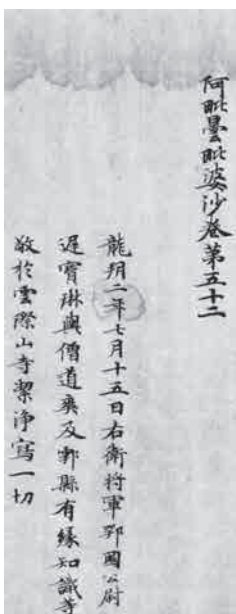 阿毗曇毗婆沙卷第五十二
龍朔二年七月十五日右衛將軍鄂國公尉
遲寶琳與僧道奭及鄠縣有緣知識等
敬於雲際山寺潔淨寫一切